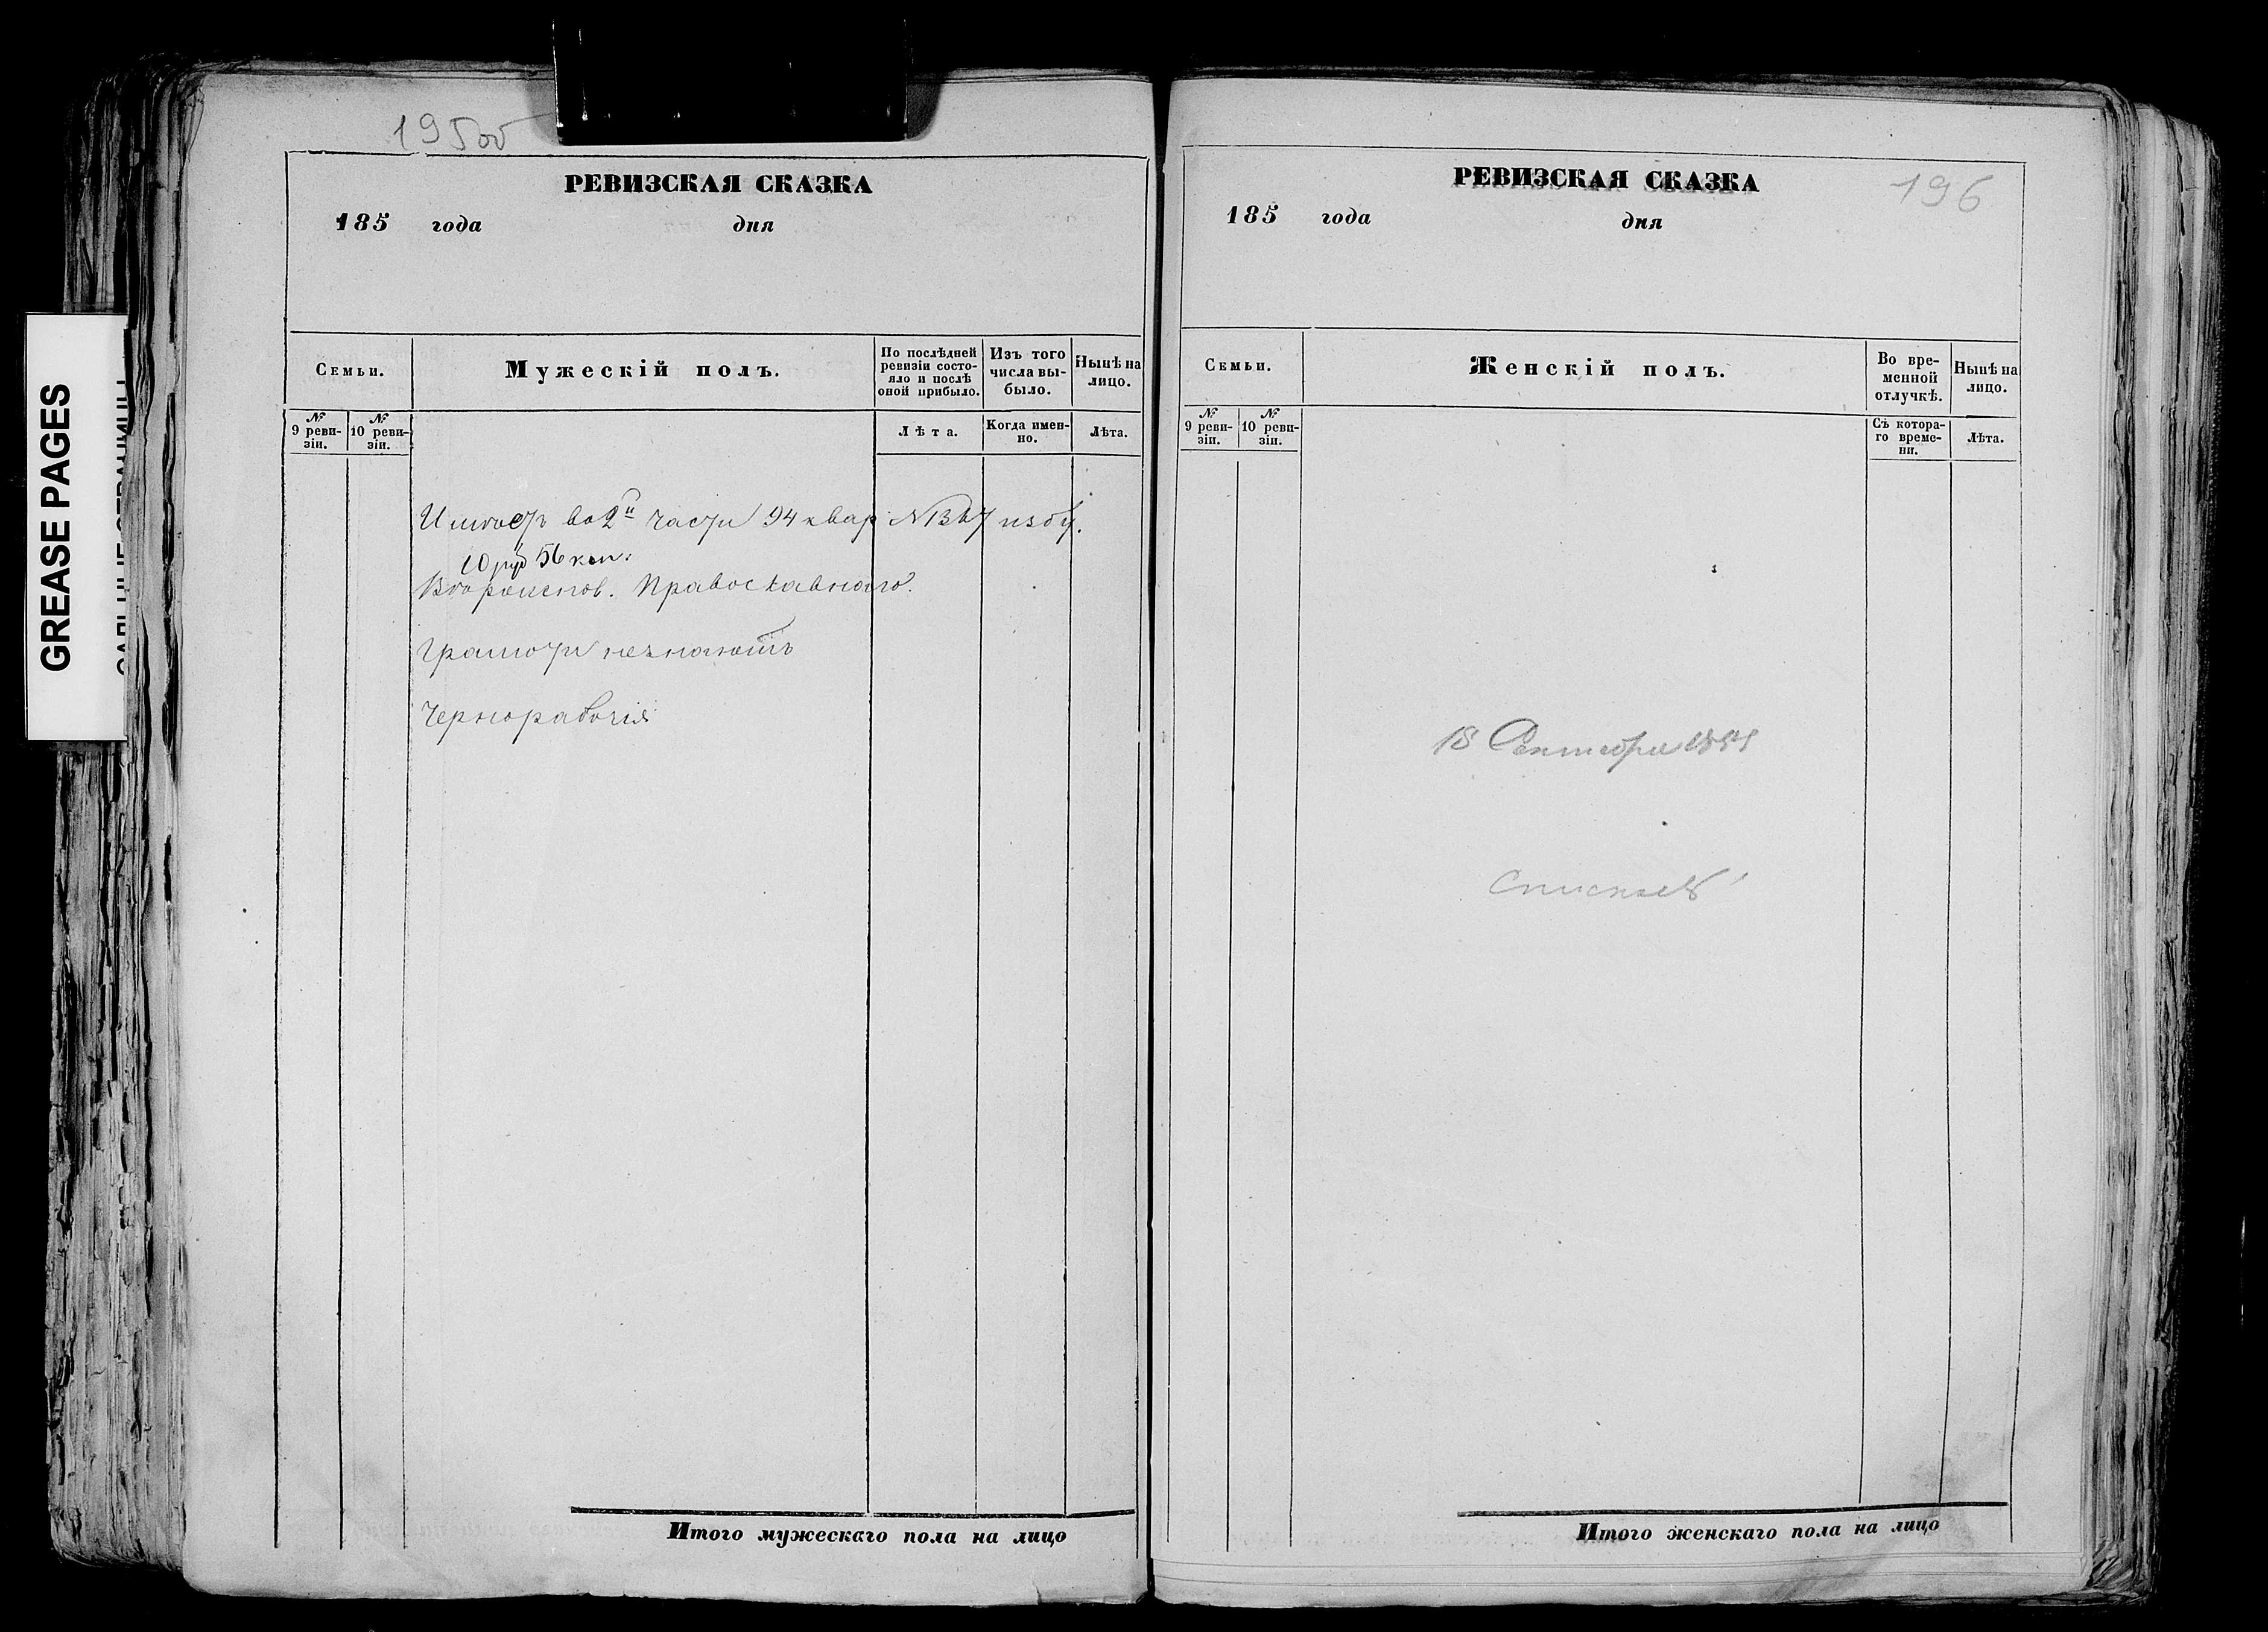 195об
РЕВИЗСКАЯ СКАЗКА
185 года дня
Семьи.
Мужескій полъ.
По послѣдней
ревизіи состо-
яло и послѣ
оной прибыло.
Изъ того
числа вы-
было.
Нынѣ на
лицо.
№
9 реви-
зіи.
№
10 реви-
зіи.
Лѣта.
Когда имен-
но.
Лѣта.
Имѣетъ во 2й части 94 квар № избу.
10 руб 56 коп:
Православнаго.
Грамоти незнаютъ
Чернорабочія
Итого мужескаго пола на лицо
196
РЕВИЗСКАЯ СКАЗКА
185 года дня
Семьи.
Женскій полъ.
Во вре-
менной
отлучкѣ.
Нынѣ на
лицо.
№
9 реви-
зіи.
№
10 реви-
зіи.
Съ котора-
го време-
ни.
Лѣта.
18 Сентября
Итого женскаго пола на лицо
GREASE PAGES